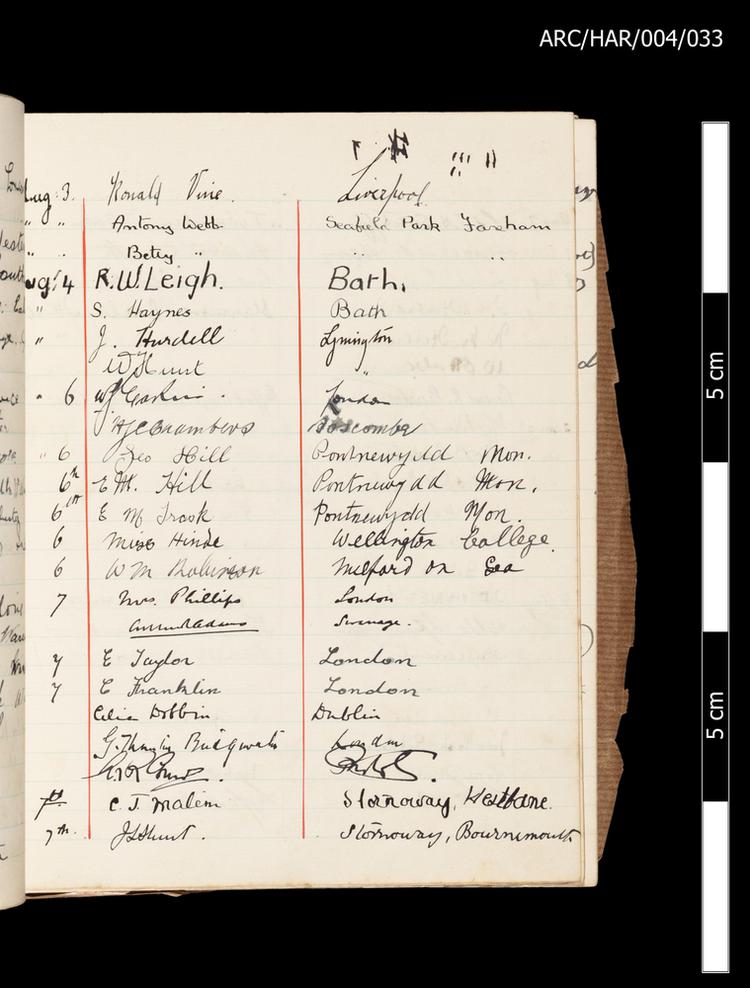 ARC/HAR/004/033
Aug. 3. Ronald Vine. Liverpool.
" " Antony Webb. Seafield Park Fareham
" " Betty " " "
Aug. 4 R.W. Leigh. Bath.
" S. Haynes Bath
" J. Hurdell Lymington
W Hunt "
" 6 London
H J C Chambers Boscombe
" 6 Geo Hill Pontnewydd Mon.
6th E M. Hill Pontnewydd Mon.
6th E M Trask Pontnewydd Mon.
6 Miss Hinde Wellington College.
6 W M Robinson Milford on Sea
7 Mrs. Phillips London
Adams Swanage.
7 E Taylor London
7 E Franklin London
Celia Dobbin Dublin
Bridgwater London
7th C. J. Malem Stornoway, Westbane.
7th. Hunt. Stornoway, Bournemouth
5 cm
5 cm